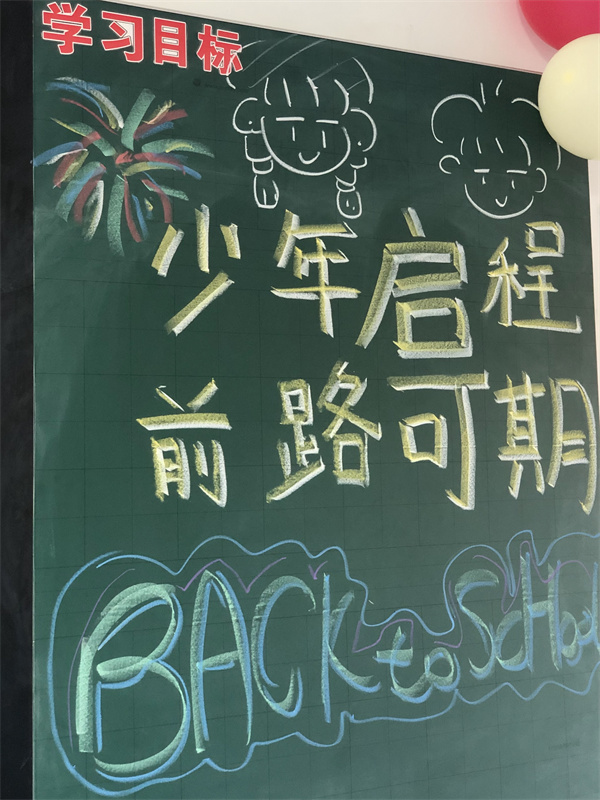 学习目标
少年启程
前路可期
BACK to ScHooL